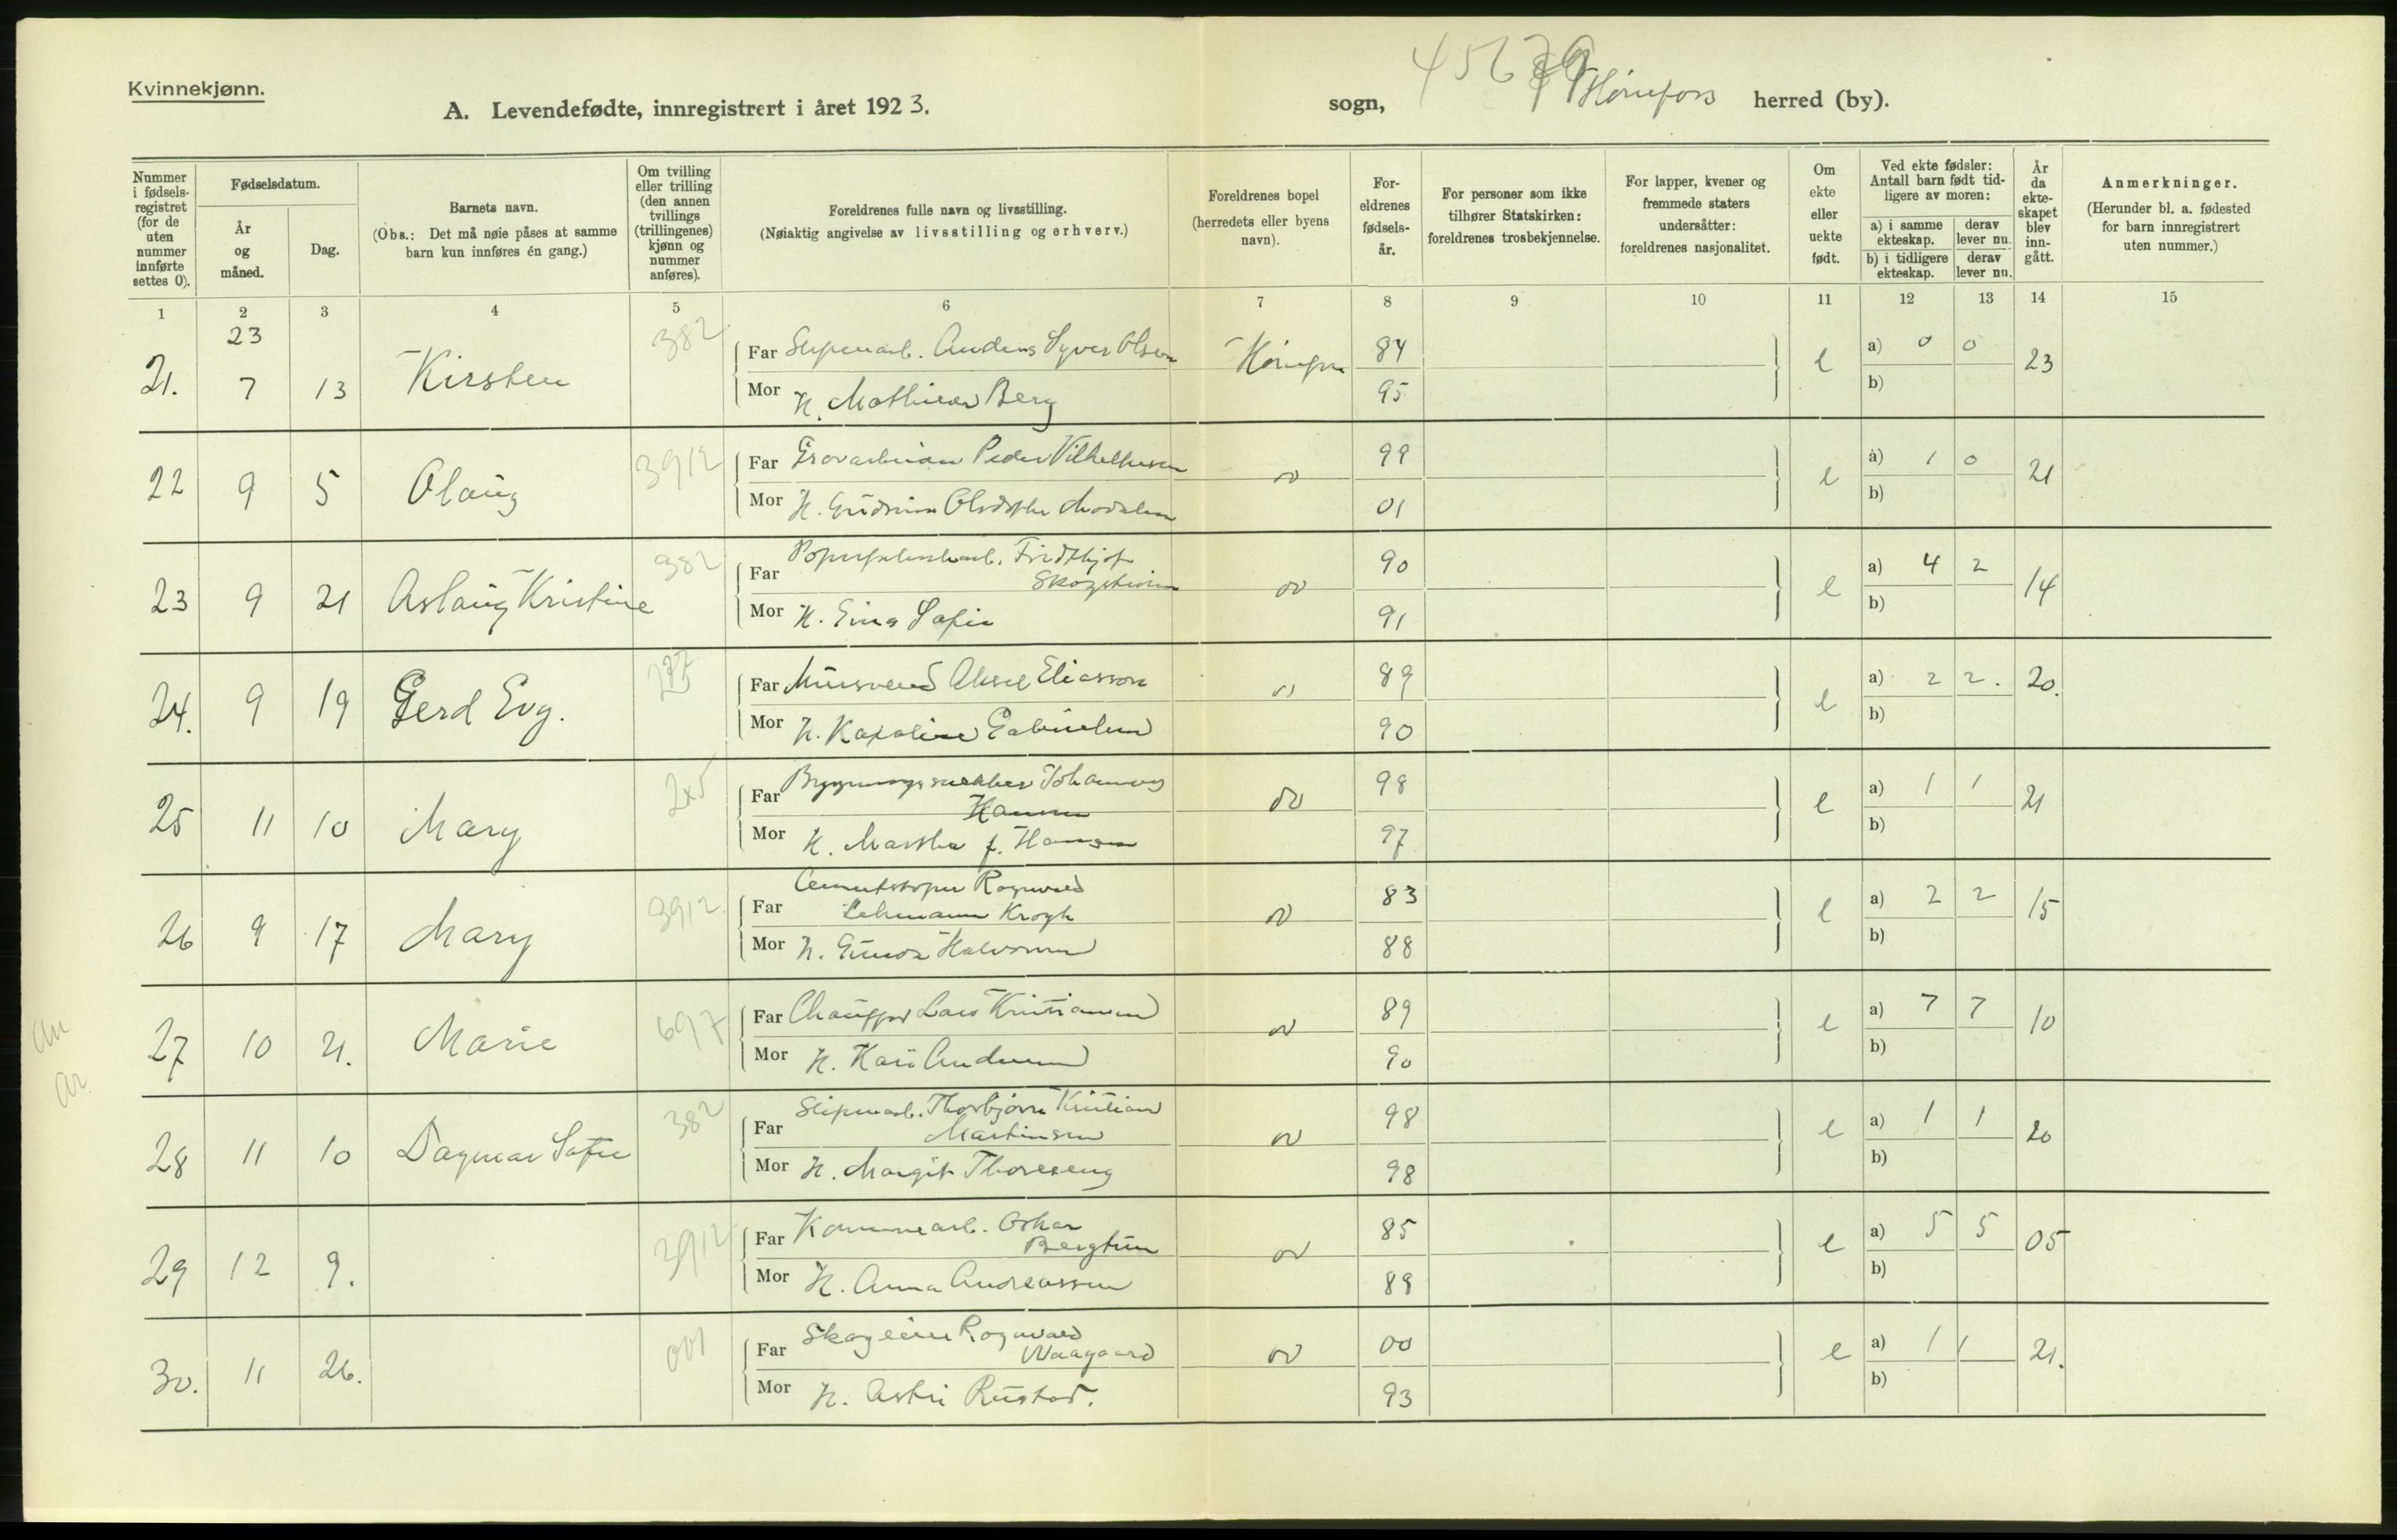 Kvinnekjønn.
A. Levendefødte, innregistrert i året 1923.
sogn, Hønefoss herred (by).
Nummer i fødsels-registret (for de uten nummer innførte settes 0).
Fødselsdatum.
År og måned.
Dag.
Barnets navn.
(Obs.: Det må nøie påses at samme barn kun innføres én gang.)
Om tvilling eller trilling (den annen tvillings (trillingenes) kjønn og nummer anføres).
Foreldrenes fulle navn og livsstilling.
(Nøiaktig angivelse av livsstilling og erhverv.)
Foreldrenes bopel
(herredets eller byens navn).
For-eldrenes fødsels-år.
For personer som ikke tilhører Statskirken: foreldrenes trosbekjennelse.
For lapper, kvener og fremmede staters undersåtter: foreldrenes nasjonalitet.
Om ekte eller uekte født.
Ved ekte fødsler: Antall barn født tid-ligere av moren:
a) i samme ekteskap. derav lever nu.
b) i tidligere ekteskap. derav lever nu.
År da ekte-skapet blev inn-gått.
Anmerkninger.
(Herunder bl. a. fødested for barn innregistrert uten nummer.)
1 2 3 4 5 6 7 8 9 10 11 12 13 14 15
23
21. 7 13 Kirsten 382 Far Sliperiarb. Anders Syver Olsen 84 e a) 0 0 23
Mor H. Mathilde Berg 95 b)
22 9 5 Olaug 3912 Far Grovarbeider Peder Vilhelmsen do 99 e a) 1 0 21
Mor H. Gudrun Olsdtr 01 b)
23 9 21 Aslaug Kristine 382 Far Fridthjof do 90 e a) 4 2 14
Mor H. Sofie 91 b)
24. 9 19 Gerd Evy. Far Mursvend Eliasson 89 e a) 2 2. 20.
Mor H. Karoline Gabrielsen 90 b)
25 11 10 Mary Far Bygningssnekker Johannes Hansen do 98 e a) 1 1 21
Mor H. Martha f. Hansen 97 b)
26 9 17 Mary 3912 Far Cementstøper Ragnvald Lehmann Krogh do 83 e a) 2 2 15
Mor H. Halvorsen 88 b)
27 10 21. Marie 697 Far Chauffør Lars Kristiansen do 89 e a) 7 7 10
Mor H. Kari Andersen 90 b)
28 11 10 Dagmar Sofie 382 Far Sliperiarb. Thorbjørn Kristian Martinsen do 98 e a) 1 1 20
Mor H. Margit Thoreseng 98 b)
29 12 9. 3912 Far Kommunearb. Oskar Bergtun do 85 e a) 5 5 05
Mor H. Anna Andreassen 88 b)
30. 11 26. 001 Far Skogeier Ragnvald Waagaard do 00 e a) 1 1 21.
Mor H. Astri Rustad. 93 b)